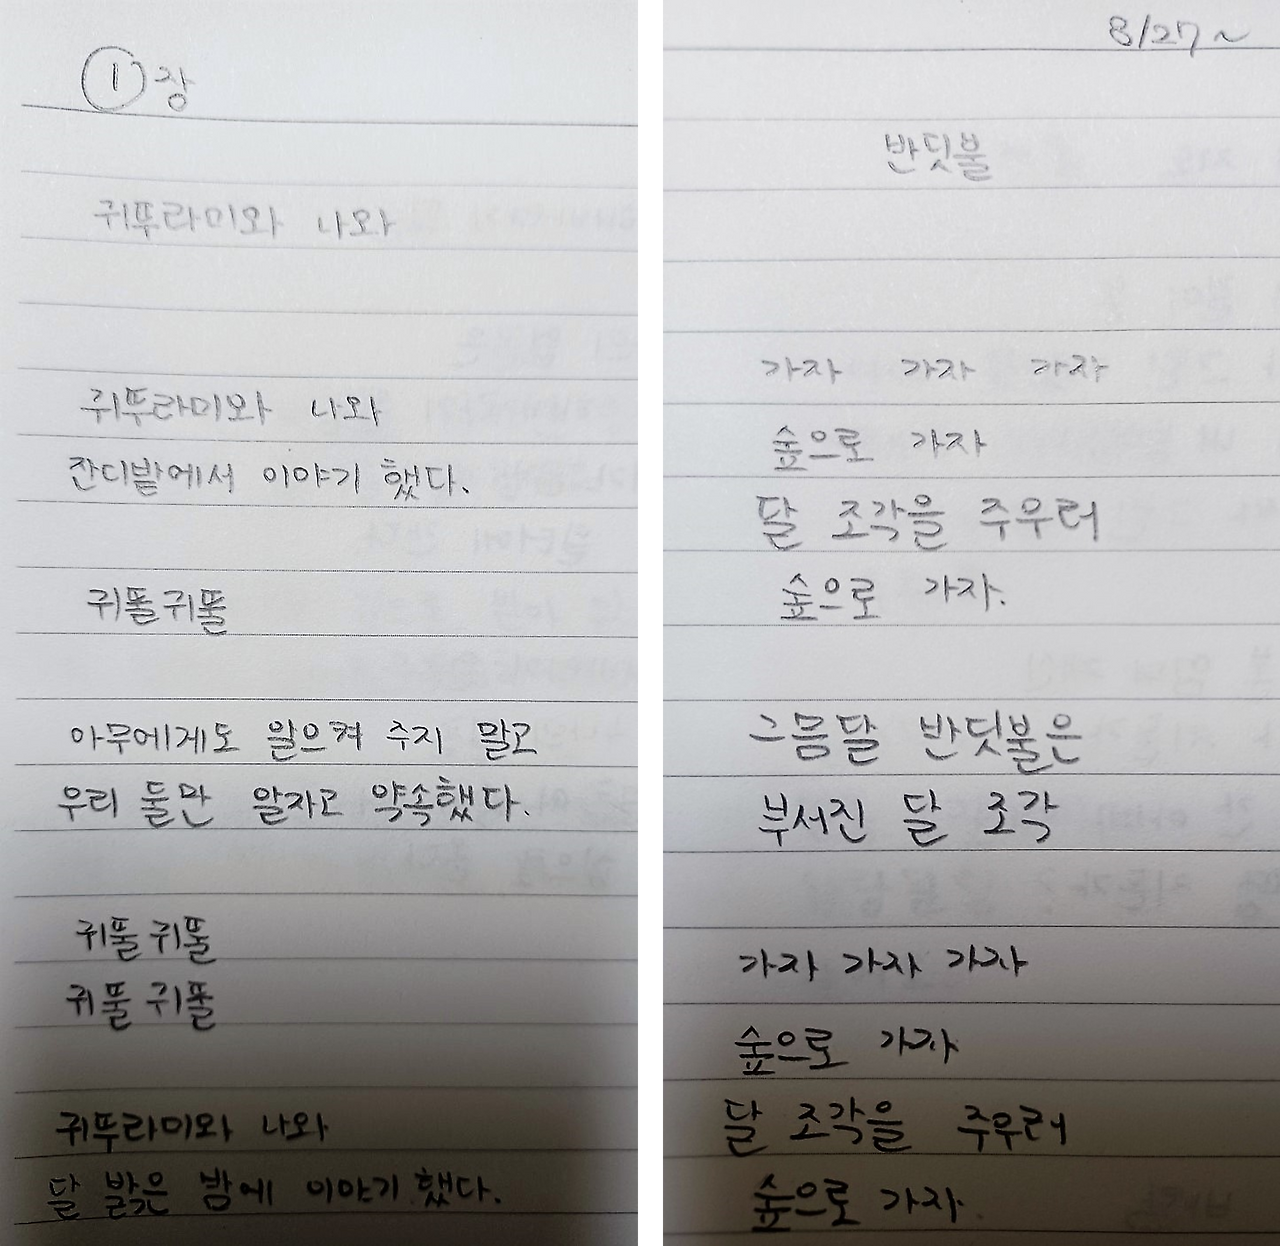 ① 장
귀뚜라미와 나와
귀뚜라미와 나와
잔디밭에서 이야기 했다.
귀뚤귀뚤
아무에게도 알으켜 주지 말고
우리 둘만 알자고 약속했다.
귀뚤귀뚤
귀뚤귀뚤
귀뚜라미와 나와
달 밝은 밤에 이야기했다.
8/27~
반딧불
가자 가자 가자
숲으로 가자
달 조각을 주우러
숲으로 가자.
그믐달 반딧불은
부서진 달 조각
가자 가자 가자
숲으로 가자
달 조각을 주우러
숲으로 가자.